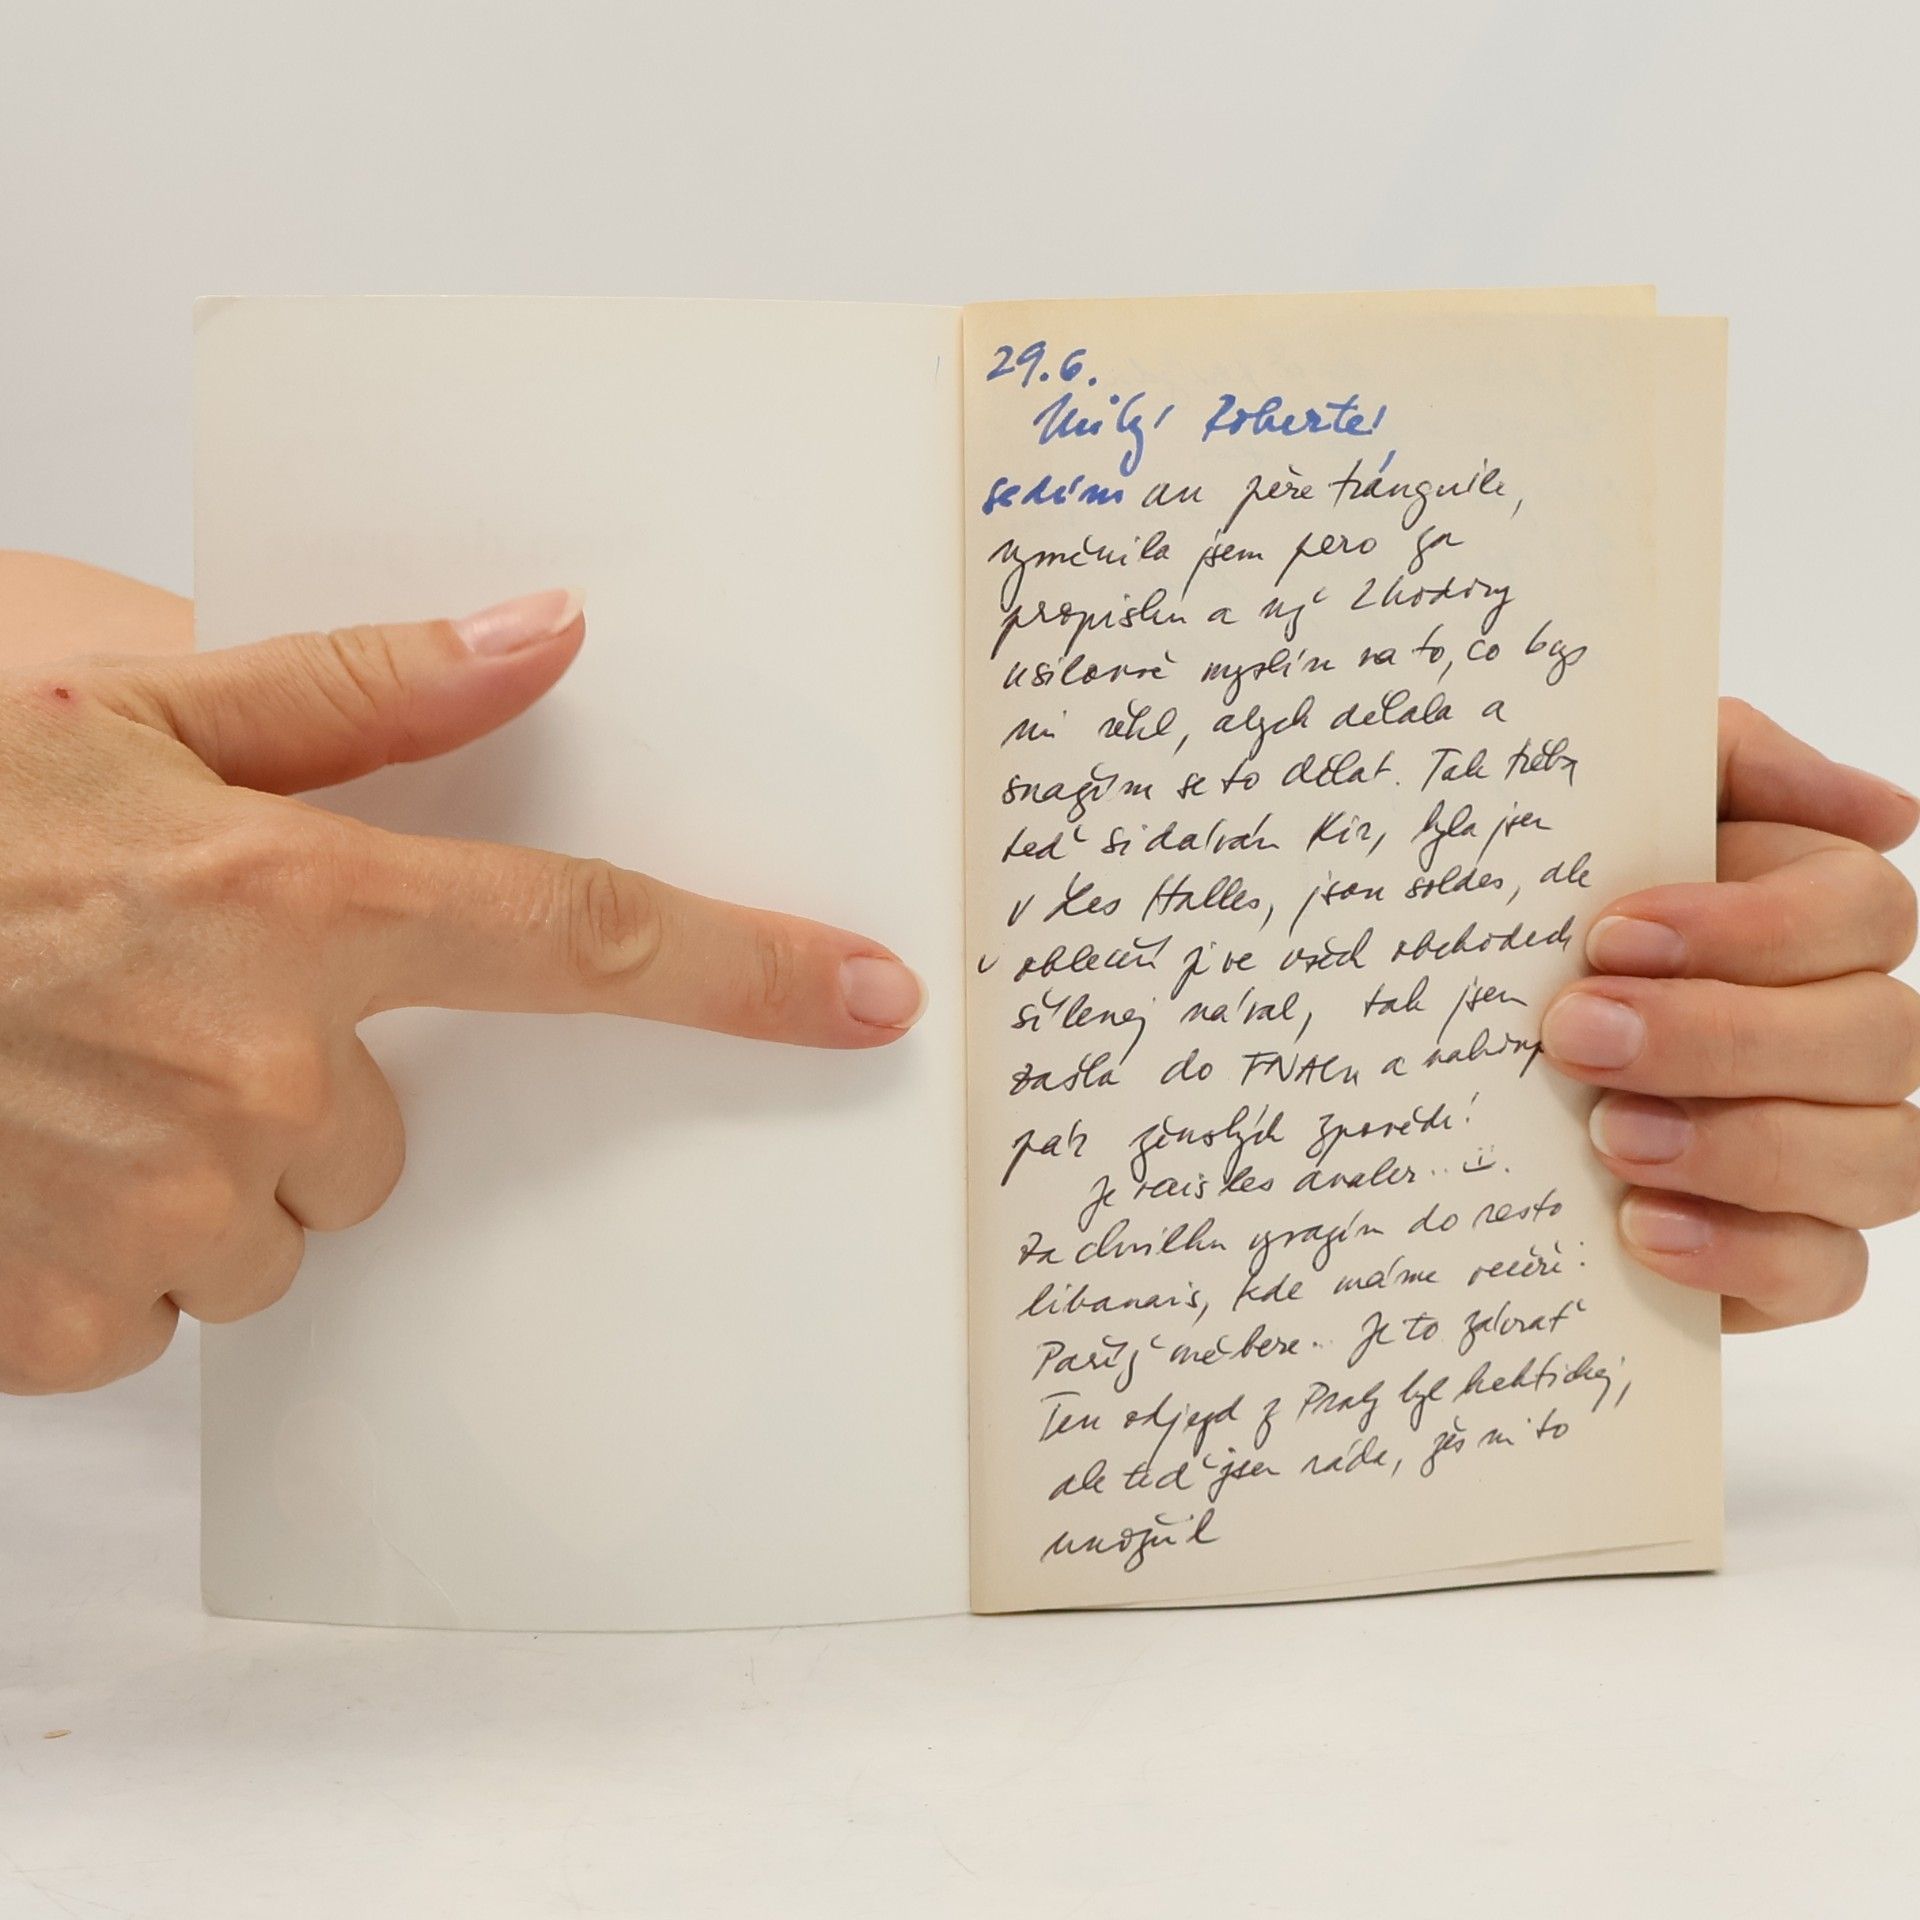 29.6.
Milý Roberte!
sedím au père tránquile,
vyměnila jsem pero za
propisku a už 2 hodiny
usilovně myslím na to, co bys
mi řekl, abych dělala a
snažím se to dělat. Tak třeba
teď si dávám Kir, byla jsem
v Les Halles, jsou soldes, ale
v oblečení je ve všech obchodech
šílenej nával, tak jsem
zašla do FNACu a nakoup
pár ženských zpovědí!
Je vais les avaler.. :).
Za chvilku vyrazím do resto
libanais, kde máme večeři:
Paříž mě bere.. Je to závrať
Ten odjezd z Prahy byl hektickej,
ale teď jsem ráda, žes mi to
umožnil